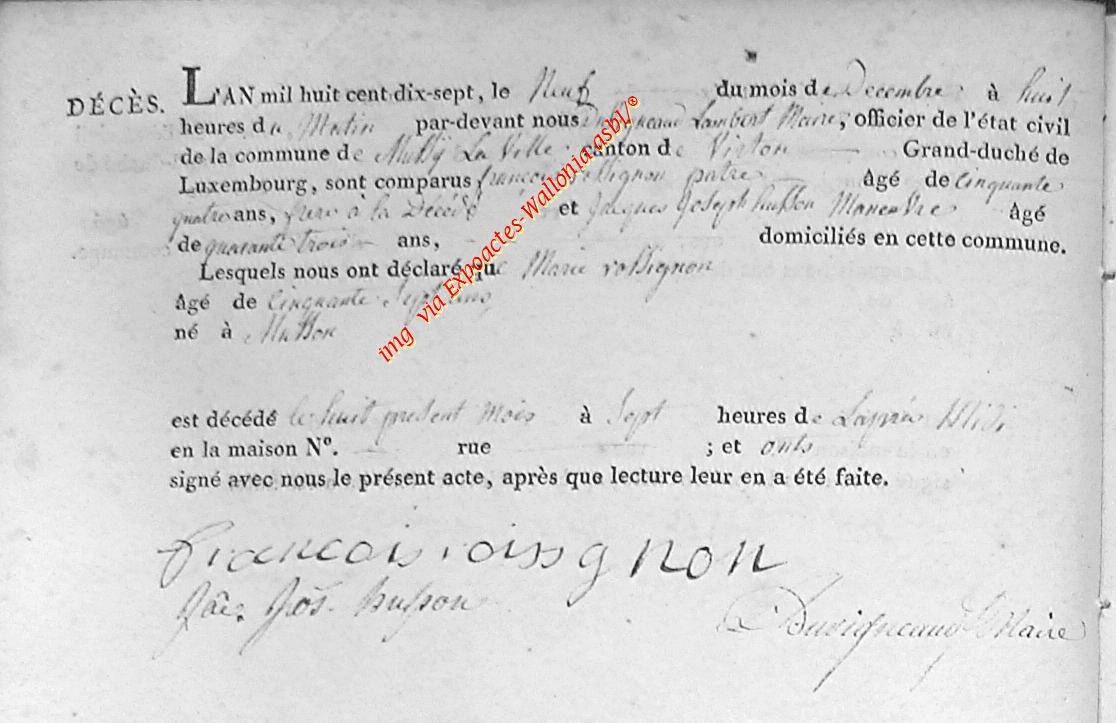 DÉCÈS. L'AN mil huit cent dix-sept, le Neuf du mois de Decembre à huit
heures du Matin par-devant nous Duvigneaud Lambert Maire, officier de l'état civil
de la commune de Mussy La Ville canton de Virton Grand-duché de
Luxembourg, sont comparus françois rossignon patre âgé de Cinquante
quatre ans, frere a la Décédé et Jacques Joseph husson Manœuvre âgé
de quarante trois ans, domiciliés en cette commune.
Lesquels nous ont déclaré que Marie rossignon
âgé de Cinquante Sept ans
né à Musson
est décédé le huit present mois à Sept heures de Laprés Midi
en la maison N°. rue ; et onts
signé avec nous le présent acte, après que lecture leur en a été faite.
francois roissgnon
Jâc. Jôs. husson
Duvigneaud Maire
img via Expoactes-Wallonia-asbl/®